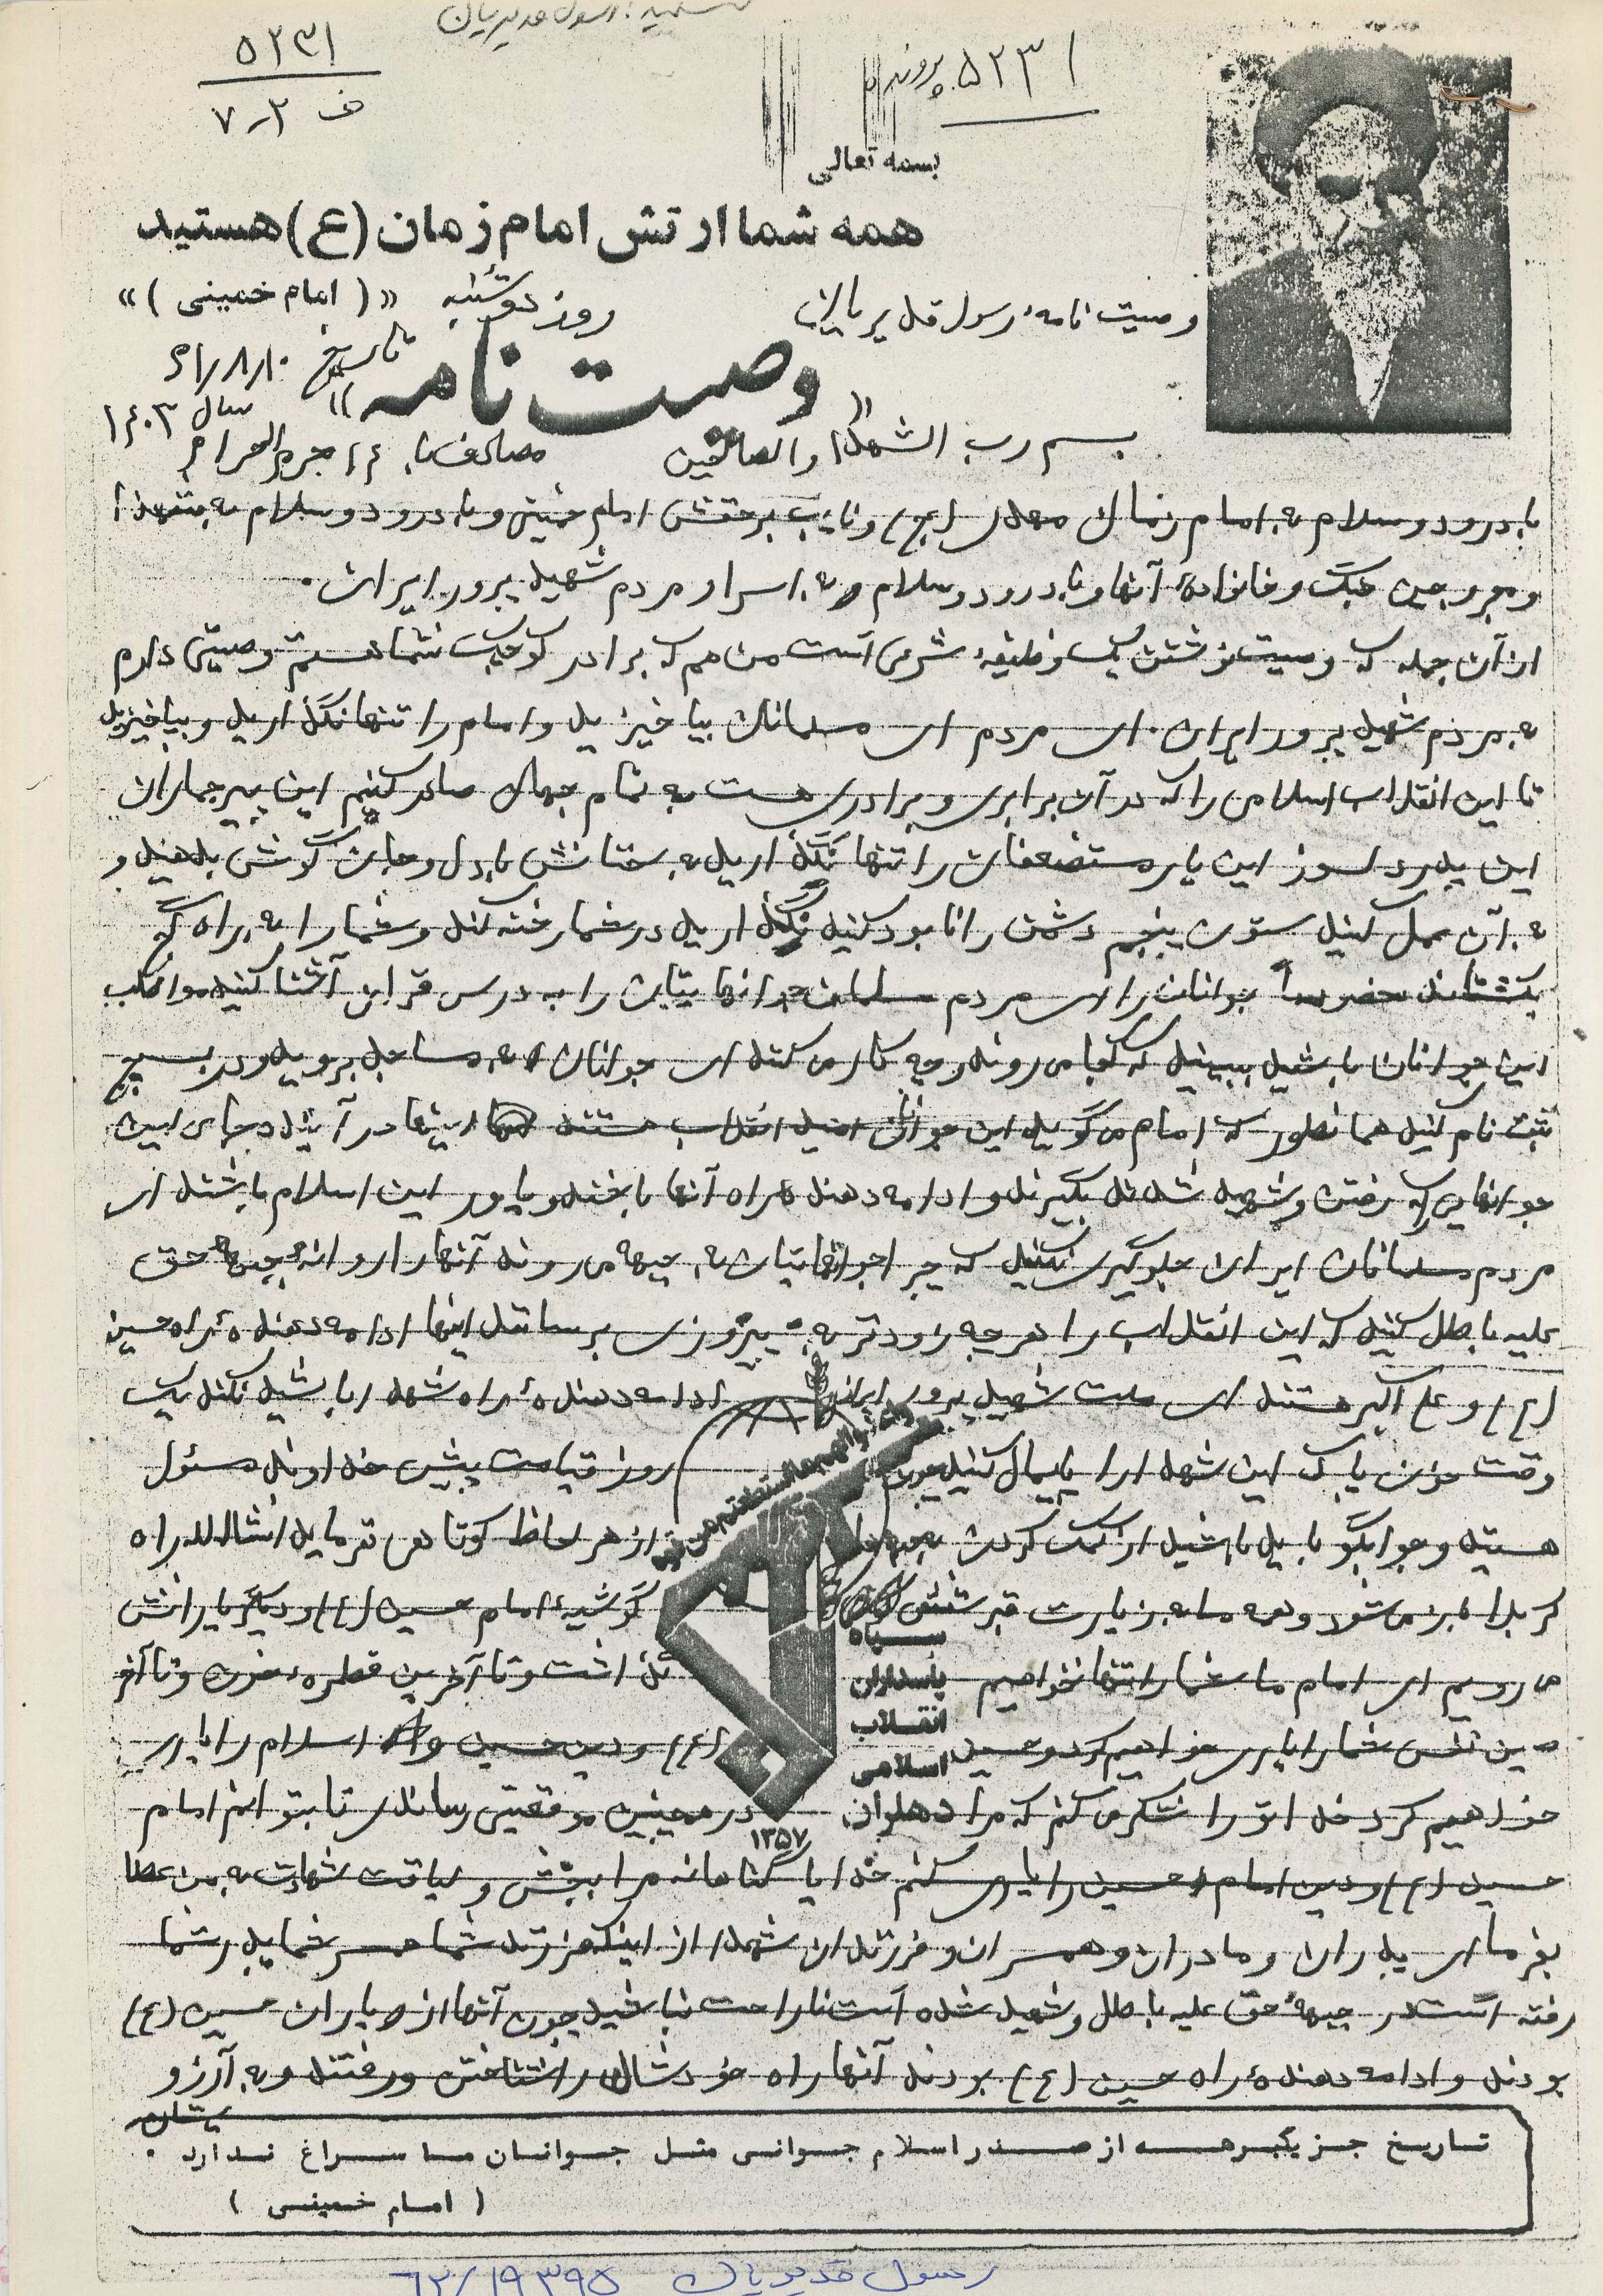 شهید: رسول قدیریان
۵۲۳۱
ف ۲-۷
۵۲۳۱ پرونده
بسمه تعالی
همه شما ارتش امام زمان (ع) هستید
«( امام خمینی )»
وصیت نامهٔ رسول قدیریان
روز دوشنبه
تاریخ ۶۱/۸/۱۰
«وصیت نامه»
سال ۱۴۰۳
بسم رب الشهدا و الصادقین
مصادف با ۱۴ محرم الحرام
با درود و سلام به امام زمان مهدی (عج) و نایب برحقش امام خمینی و با درود و سلام به شهدا
و مجروحین جنگ و خانوادهٔ آنها و با درود و سلام و به اسرا و مردم شهید پرور ایران.
از آن جمله که وصیت نوشتن یک وظیفهٔ شرعی است من هم که برادر کوچک شما هستم وصیتی دارم
به مردم شهید پرور ایران. ای مردم ای مسلمانان بپا خیزید و امام را تنها نگذارید و بپاخیزید
تا این انقلاب اسلامی را که در آن برابری و برادری هست به تمام جهان صادر کنیم این پیر جماران
این پدر دلسوز این یار مستضعفان را تنها نگذارید به سخنانش با دل و جان گوش بدهید و
به آن عمل کنید ستون پنجم دشمن را نابود کنید نگذارید در شما رخنه کند و شما را به راه کج
بکشانند خصوصاً جوانان را ای مردم مسلمان جوانهایتان را به درس قران آشنا کنید مواظب
این جوانان باشید ببینید که کجا می روند و چه کار می کنند ای جوانان به مساجد بروید و در بسیج
ثبت نام کنید همانطور که امام می گوید این جوانان امید انقلاب هستند اینها در آینده جای این
جوانهایی که رفتن و شهید شدند بگیرند و ادامه دهنده راه آنها باشند و یاور این اسلام باشند ای
مردم مسلمانان ایران جلوگیری نکنید که چرا جوانهایتان به جبهه می روند آنها را روانهٔ جبههٔ حق
علیه باطل کنید که این انقلاب را هر چه زودتر به پیروزی برسانند اینها ادامه دهندهٔ راه حسین
(ع) و علی اکبر هستند ای ملت شهید پرور ایران ادامه دهندهٔ راه شهدا باشید نکند یک
وقت خون پاک این شهدا را پایمال کنید چون روز قیامت پیش خداوند مسئول
هستید و جوابگو باید باشید از کمک کردن به جبهه ها از هر لحاظ کوتاهی نفرمایید انشالله راه
کربلا باز می شود و همه ما به زیارت قبر شش گوشیهٔ امام حسین (ع) و دیگر یارانش
می رویم ای امام ما شما را تنها نخواهیم گذاشت و تا آخرین قطرهٔ خون و تا آخر
ین نفس شما را یاری خواهیم کرد و حسین (ع) و دین حسین و اسلام را یاری
خواهیم کرد خدا تو را شکر می کنم که مرا در همچنین موقعیتی رساندی تا بتوانم امام
حسین (ع) و دین امام حسین را یاری کنم خدایا گناهانه مرا ببخش و لیاقت شهادت به من عطا
بفرما ای پدران و مادران و همسران و فرزندان شهدا از اینکه فرزند شما همسر شما پدر شما
رفته است در جبههٔ حق علیه باطل و شهید شده است ناراحت نباشید چون آنها از یاران حسین (ع)
بودند و ادامه دهندهٔ راه حسین (ع) بودند آنها راه خودشان را شناختن و رفتند و به آرزو
یشان
سپاه
پاسداران
انقلاب
اسلامی
دهلران
۱۳۵۷
تاریخ جز یکبرهه از صدر اسلام جوانی مثل جوانان ما سراغ ندارد .
( امام خمینی )
رسول قدیریان ۶۲/۱۹۳۹۵